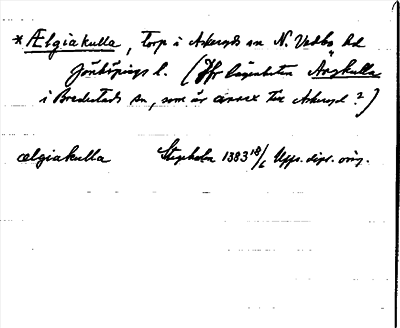 *Ælgiakulla, torp i Askeryds sn N. Vedbo hd
Jönköpings l. (Jfr lägenheten Älgkulla
i Bredestads sn, som är annex till Askeryd?)
ælgiakulla Stegeholm 1383 18/6 Upps. dipl. orig.